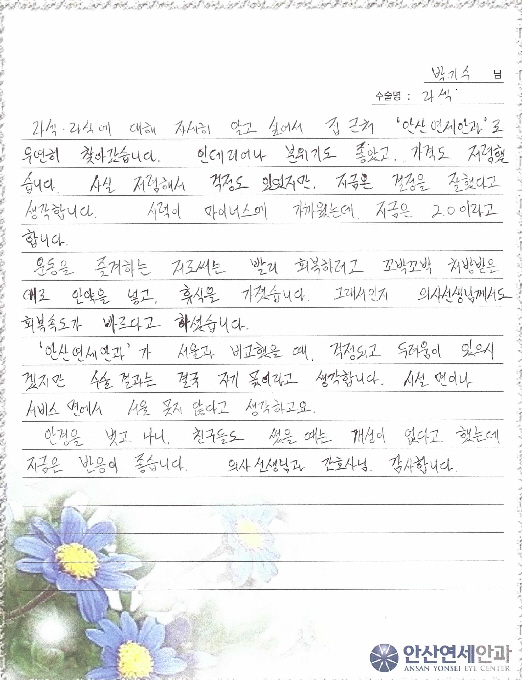 박기수 님
수술명 : 라섹
라섹·라식에 대해 자세히 알고 싶어서 집 근처 '안산연세안과'로
우연히 찾아갔습니다. 인테리어나 분위기도 좋았고, 가격도 저렴했
습니다. 사실 저렴해서 걱정도 있었지만, 지금은 결정을 잘했다고
생각합니다. 시력이 마이너스에 가까웠는데 지금은 2.0이라고
합니다.
운동을 즐겨하는 저로써는 빨리 회복하려고 꼬박꼬박 처방받은
대로 안약을 넣고, 휴식을 가졌습니다. 그래서인지 의사선생님께서도
회복속도가 빠르다고 하셨습니다.
'안산연세안과'가 서울과 비교했을 때, 걱정되고 두려움이 있으시
겠지만 수술 결과는 결국 자기 몫이라고 생각합니다. 시설 면이나
서비스 면에서 서울 못지 않다고 생각하고요.
안경을 벗고 나니, 친구들도 썼을 때는 개성이 없다고 했는데
지금은 반응이 좋습니다. 의사 선생님과 간호사님. 감사합니다.
안산연세안과
ANSAN YONSEI EYE CENTER